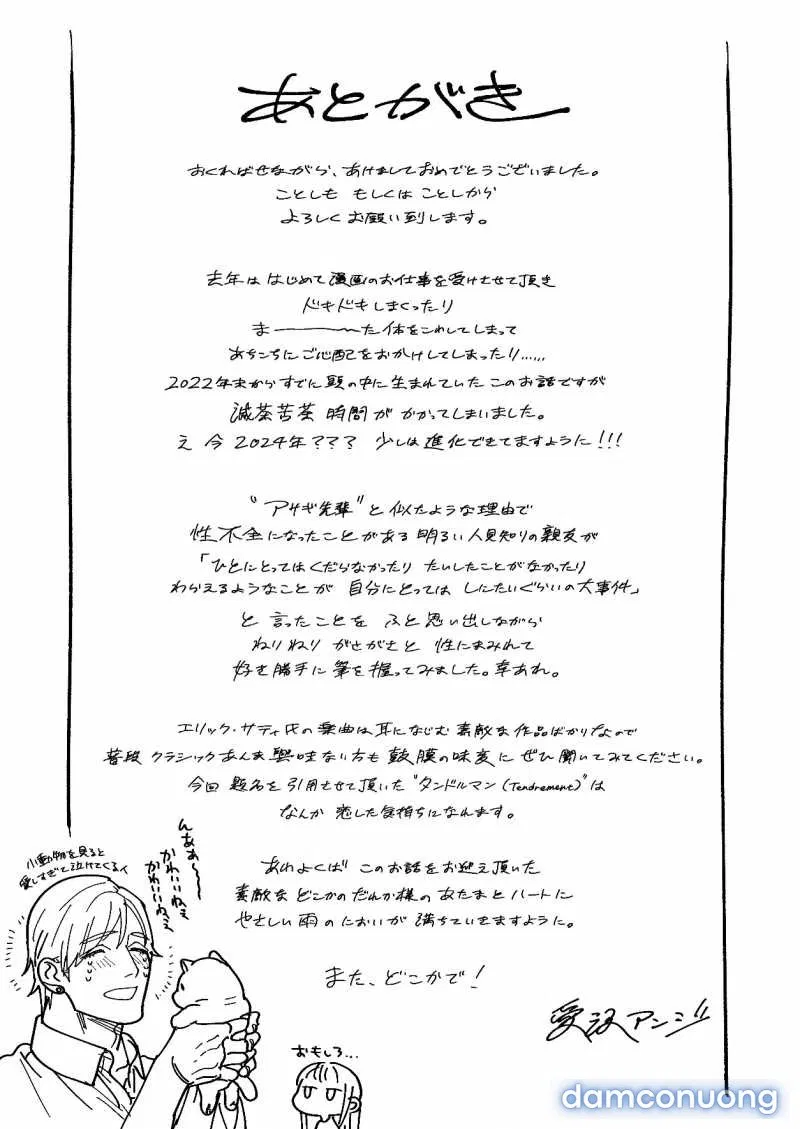 あとがき
おくればせながら、あけましておめでとうございました。
ことしも もしくは ことしから
よろしく お願い致します。
去年は はじめて 漫画のお仕事を受けさせて頂き
ドキドキしまくったり
ま―――――た 体をこわしてしまって
あちこちに ご心配を おかけしてしまったり……
2022年末から すでに 頭の中に 生まれていた このお話ですが
滅茶苦茶 時間が かかってしまいました。
え 今 2024年??? 少しは 進化できてますように!!!
"アサギ先輩" と 似たような 理由で
性不全になったことがある 明るい 人見知りの 親友が
「ひとにとっては くだらなかったり たいしたことがなかったり
わらえるようなことが 自分にとっては しにたいぐらいの 大事件」
と 言ったことを ふと 思い出しながら
ねりねり がさがさと 性にまみれて
好き勝手に 筆を 握ってみました。幸あれ。
エリック・サティ氏の 楽曲は 耳になじむ 素敵な 作品ばかりなので
普段 クラシック あんま 興味ない方も 鼓膜の味変に ぜひ 聞いてみてください。
今回 題名を 引用させて頂いた "タンドルマン (Tendrement)" は
なんか 恋した 気持ちになれます。
あわよくば このお話を お迎え頂いた
素敵な どこかの だれか様の あたまと ハートに
やさしい 雨の においが 満ちていきますように。
また、どこかで!
愛沢アンジ
小動物を見ると
愛しすぎて泣けてくるイ
んあぁ〜
かわいいねぇ
かわいいねぇ
おもしろ...
damconuong